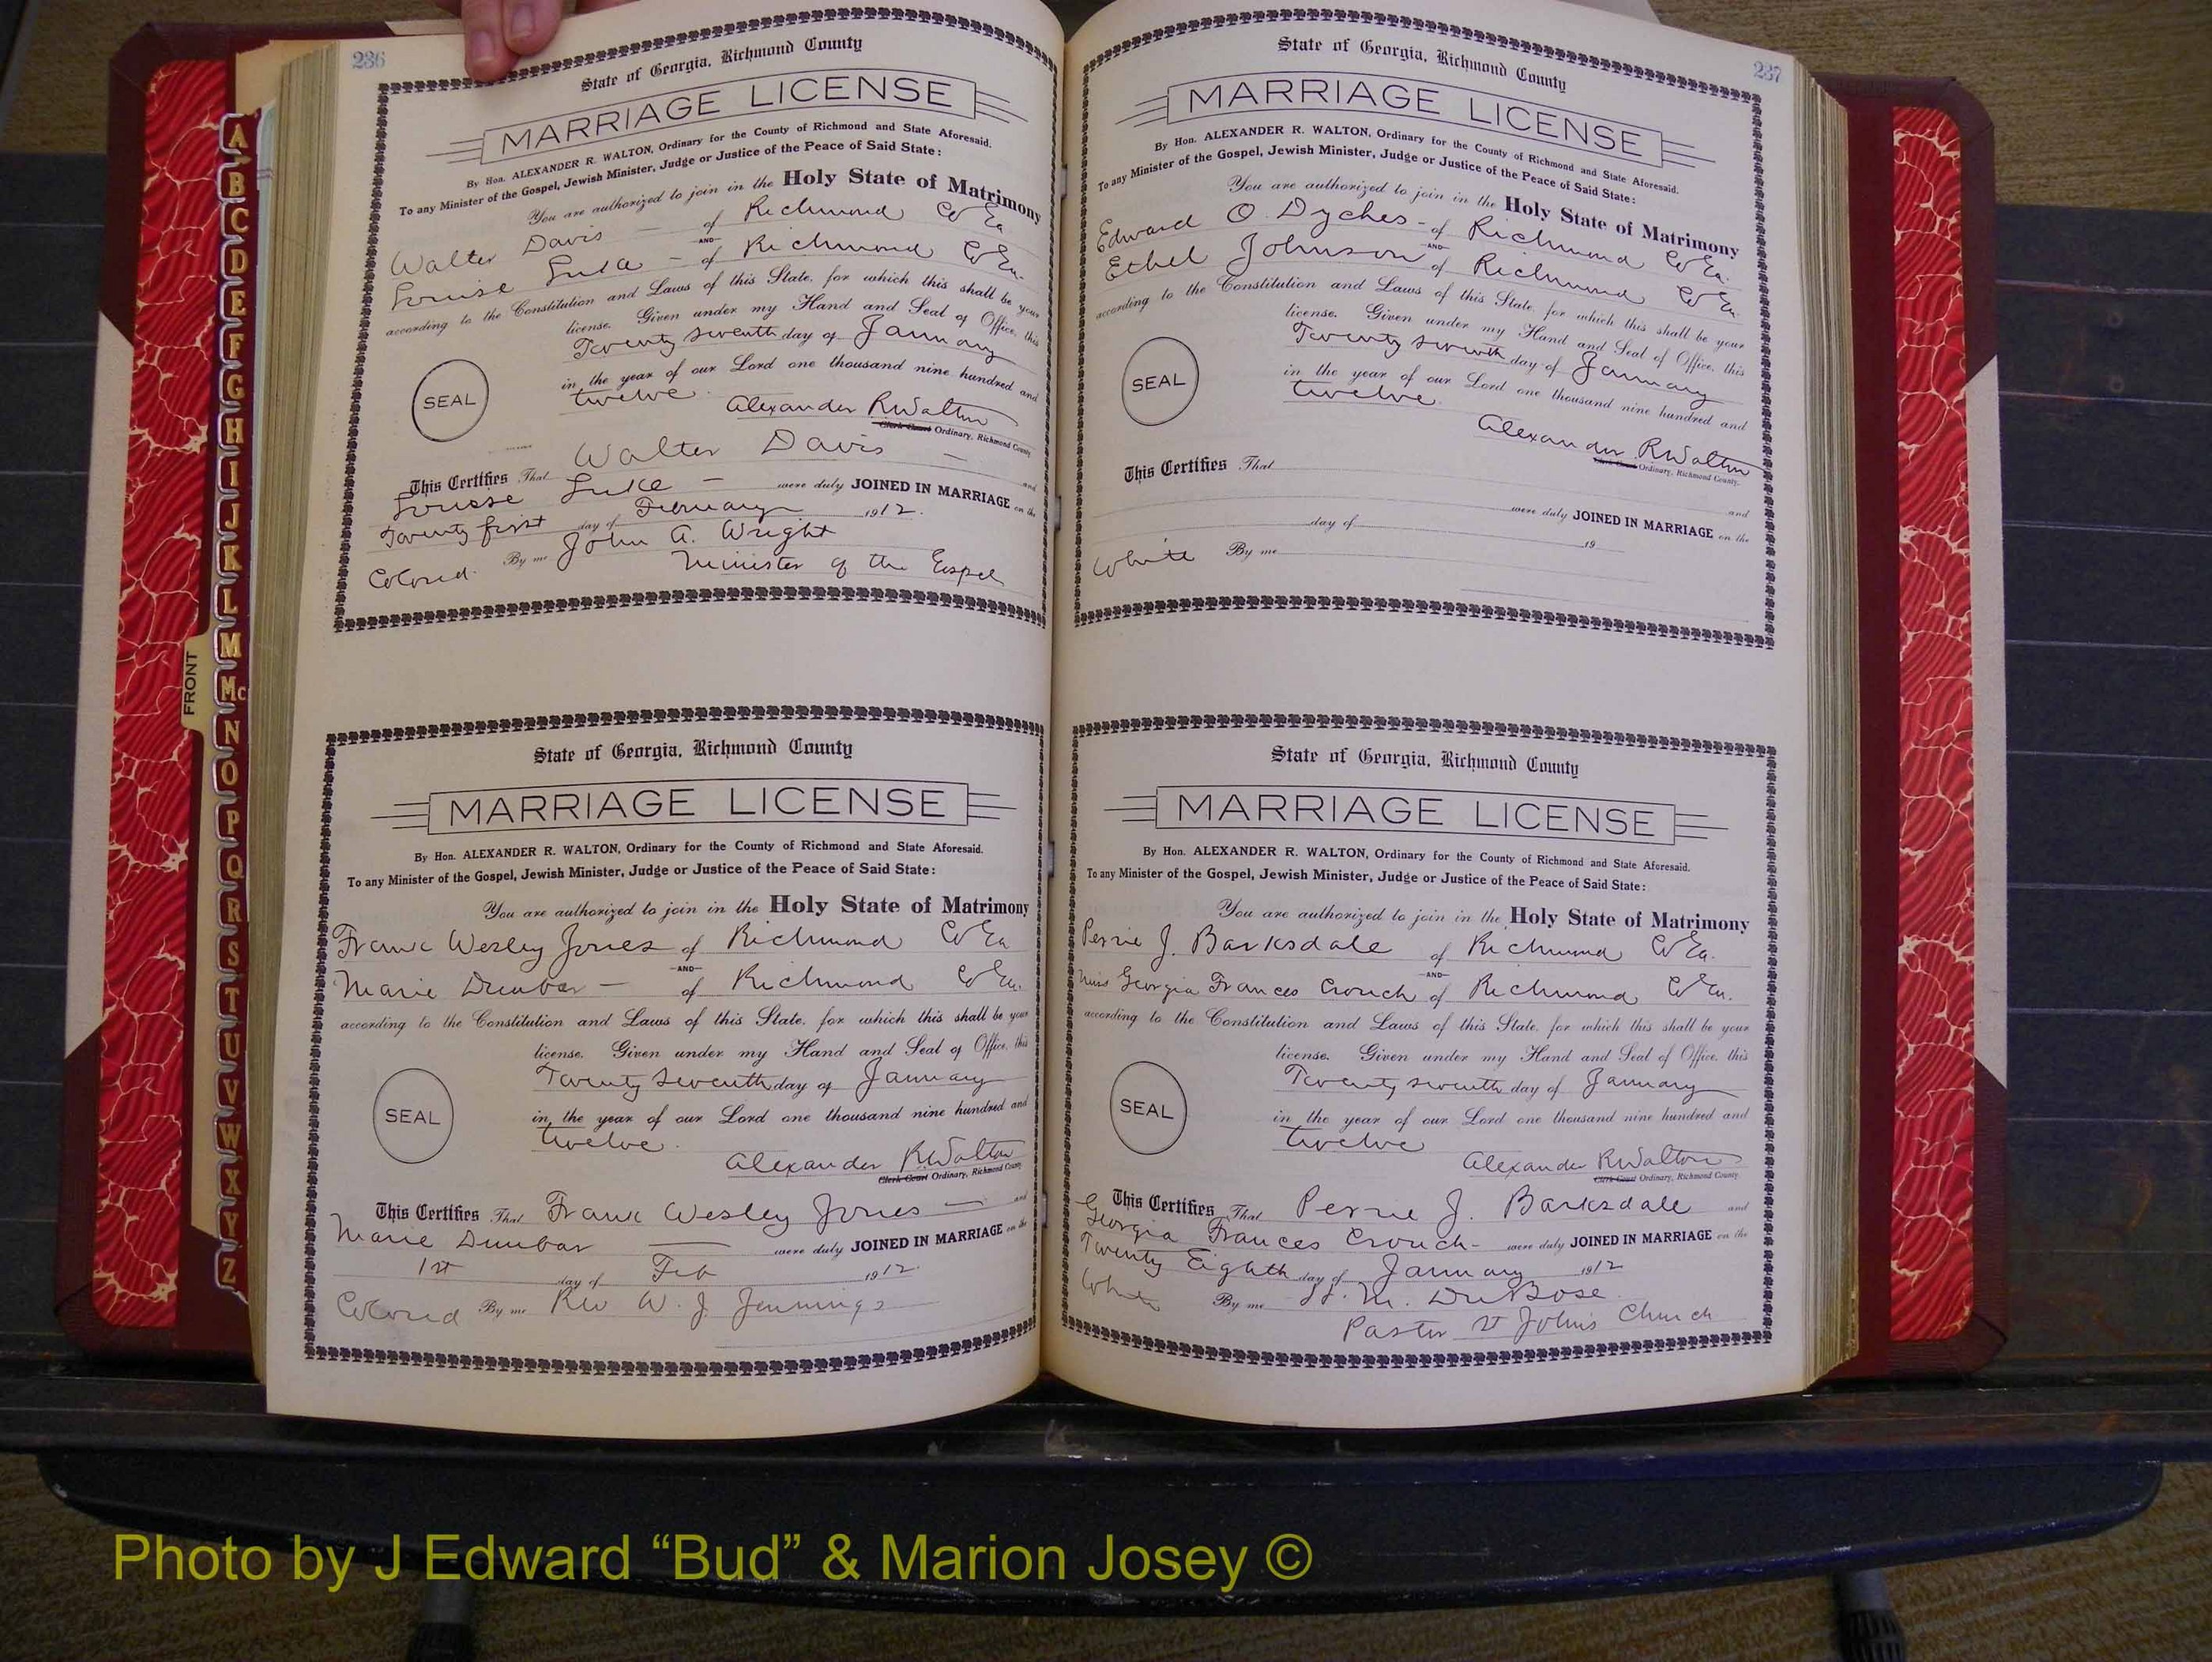 236
State of Georgia, Richmond County
MARRIAGE LICENSE
By Hon. ALEXANDER R. WALTON, Ordinary for the County of Richmond and State Aforesaid.
To any Minister of the Gospel, Jewish Minister, Judge or Justice of the Peace of Said State:
You are authorized to join in the Holy State of Matrimony
Walter Davis — of Richmond Co Ga
AND
Louise Luke — of Richmond Co Ga.
according to the Constitution and Laws of this State, for which this shall be your
license. Given under my Hand and Seal of Office, this
Twenty seventh day of January
in the year of our Lord one thousand nine hundred and
twelve.
SEAL
Alexander R Walton
Clerk Court Ordinary, Richmond County.
This Certifies That Walter Davis — and
Louise Luke — were duly JOINED IN MARRIAGE on the
Twenty first day of February 1912.
By me John A. Wright
Colored. Minister of the Gospel
State of Georgia, Richmond County
MARRIAGE LICENSE
By Hon. ALEXANDER R. WALTON, Ordinary for the County of Richmond and State Aforesaid.
To any Minister of the Gospel, Jewish Minister, Judge or Justice of the Peace of Said State:
You are authorized to join in the Holy State of Matrimony
Frank Wesley Jones of Richmond Co Ga
AND
Marie Dunbar — of Richmond Co Ga.
according to the Constitution and Laws of this State, for which this shall be your
license. Given under my Hand and Seal of Office, this
Twenty Seventh day of January
in the year of our Lord one thousand nine hundred and
twelve.
SEAL
Alexander R Walton
Clerk Court Ordinary, Richmond County
This Certifies That Frank Wesley Jones — and
Marie Dunbar — were duly JOINED IN MARRIAGE on the
1st day of Feb 1912.
Colored By me Rev W. J. Jennings
237
State of Georgia, Richmond County
MARRIAGE LICENSE
By Hon. ALEXANDER R. WALTON, Ordinary for the County of Richmond and State Aforesaid.
To any Minister of the Gospel, Jewish Minister, Judge or Justice of the Peace of Said State:
You are authorized to join in the Holy State of Matrimony
Edward O. Dyches — of Richmond Co Ga.
AND
Ethel Johnson of Richmond Co Ga.
according to the Constitution and Laws of this State, for which this shall be your
license. Given under my Hand and Seal of Office, this
Twenty seventh day of January
in the year of our Lord one thousand nine hundred and
twelve.
SEAL
Alexander R Walton
Clerk Court Ordinary, Richmond County.
This Certifies That
and
were duly JOINED IN MARRIAGE on the
day of 19
White By me
State of Georgia, Richmond County
MARRIAGE LICENSE
By Hon. ALEXANDER R. WALTON, Ordinary for the County of Richmond and State Aforesaid.
To any Minister of the Gospel, Jewish Minister, Judge or Justice of the Peace of Said State:
You are authorized to join in the Holy State of Matrimony
Perrie J. Barksdale of Richmond Co Ga.
AND
Miss Georgia Frances Crouch of Richmond Co Ga.
according to the Constitution and Laws of this State, for which this shall be your
license. Given under my Hand and Seal of Office, this
Twenty seventh day of January
in the year of our Lord one thousand nine hundred and
twelve
SEAL
Alexander R Walton
Clerk Court Ordinary, Richmond County.
This Certifies That Perrie J. Barksdale and
Georgia Frances Crouch — were duly JOINED IN MARRIAGE on the
Twenty Eighth day of January 1912
White By me H. M. DuBose.
Pastor St Johns Church
FRONT
A
B
C
D
E
F
G
H
I
J
K
L
M
Mc
N
O
P
Q
R
S
T
U
V
W
X
Y
Z
Photo by J Edward “Bud” & Marion Josey ©